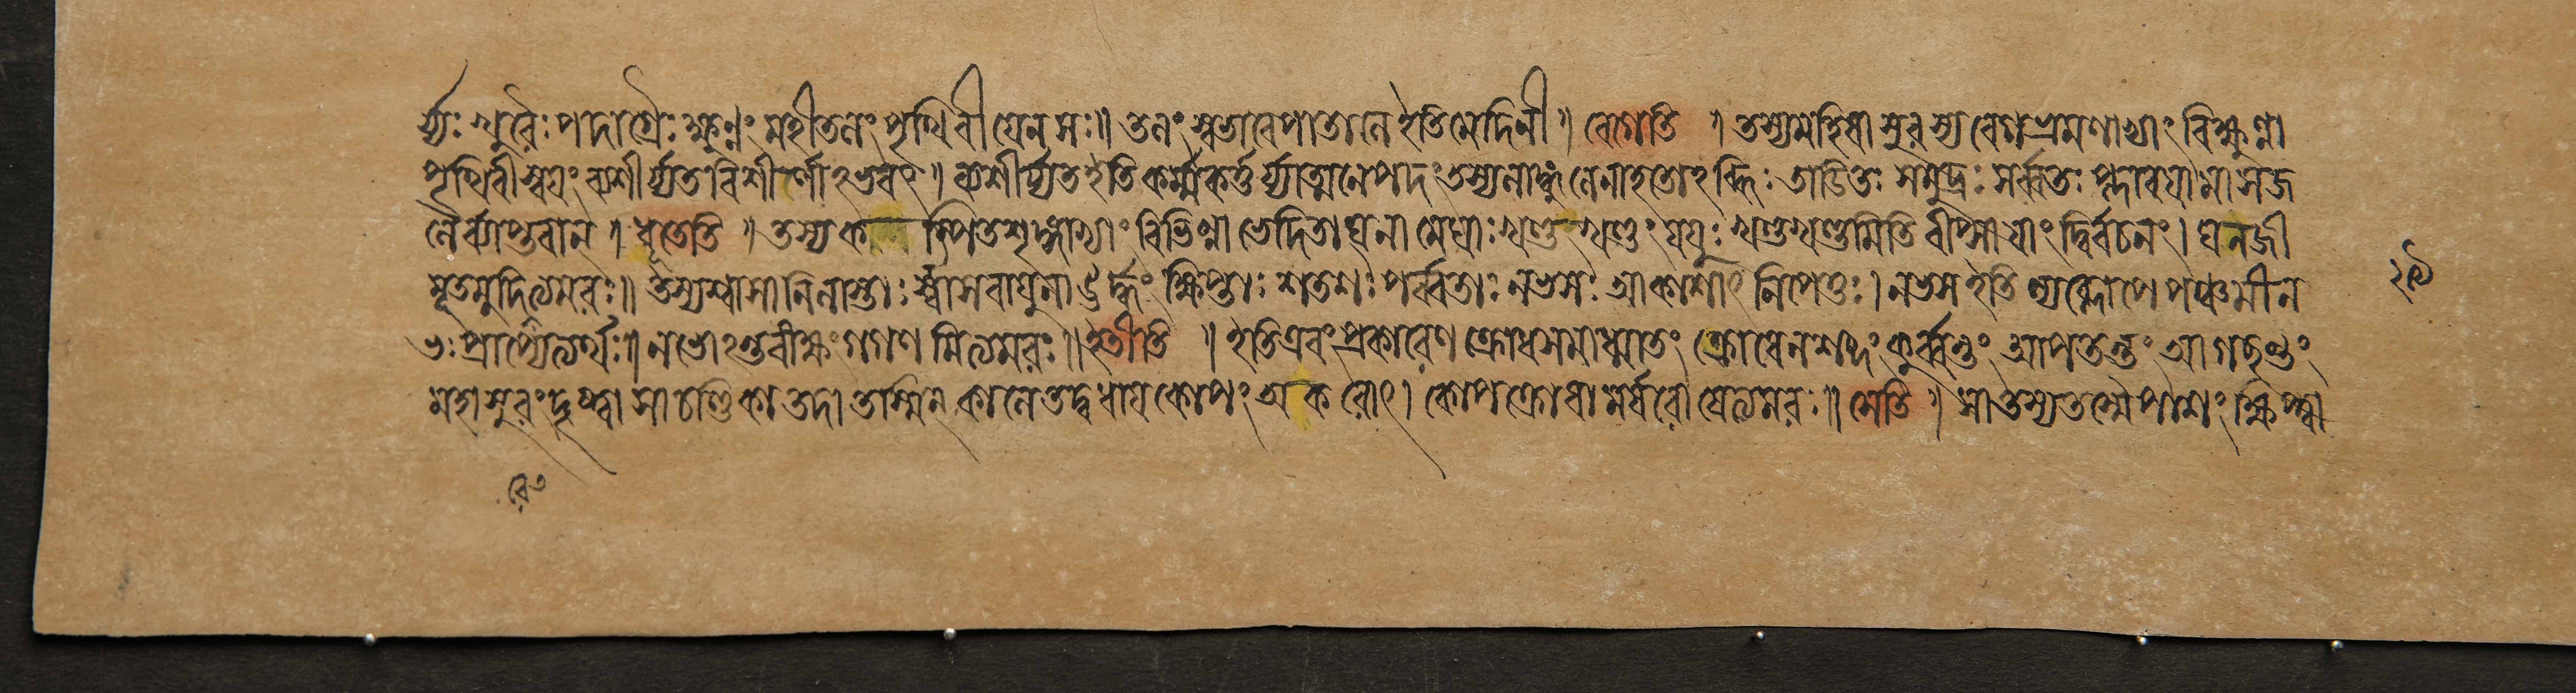 র্য্যঃ খুরৈঃ পদাগ্রৈঃ ক্ষুণ্ণং মহীতলং পৃথিবী যেন সঃ॥ তলং স্বভাবে পাতালে ইতি মেদিনী॥ বেগেতি ॥ তস্য মহিষাসুরস্য বেগভ্রমণাখ্যাং বিক্ষুণ্ণা
পৃথিবী স্বয়ং ব্যশীর্য্যত বিশীর্ণাঽভবৎ॥ ব্যশীর্য্যত ইতি কর্ম্মকর্ত্তর্য্যাত্মনেপদং তস্য লাঙ্গুলেনাহতোঽব্ধিঃ তাডিতঃ সমুদ্রঃ সর্ব্বতঃ প্লাবয়ামাস জ
লৈর্ব্যাপ্তবান্ ॥ ধূতেতি ॥ তস্য ক ম্পিতশৃঙ্গাভ্যাং বিভিন্না ভেদিতা ঘনা মেঘাঃ খণ্ডং খণ্ডং যযুঃ খণ্ডখণ্ডমিতি বীপ্সায়াং দ্বির্বচনং। ঘনজী
মূতমুদিরা ইত্যমরঃ॥ তস্য শ্বাসানিলাস্তাঃ শ্বাসবায়ুনা ঊর্দ্ধং ক্ষিপ্তাঃ শতশঃ পর্ব্বতাঃ নভসঃ আকাশাৎ নিপেতুঃ। নভস ইতি ল্যব্লোপে পঞ্চমী ন
ভঃ প্রাপ্যেত্যর্থঃ॥ নভোঽন্তরীক্ষং গগণমিত্যমরঃ॥ ইতীতি ॥ ইতি এবং প্রকারেণ ক্রোধসমাধ্মাতং ক্রোধেন শব্দং কুর্ব্বন্তং আপতন্তং আগচ্ছন্তং
মহাসুরং দৃষ্ট্বা সা চণ্ডিকা তদা তস্মিন্ কালে তদ্বধায় কোপং অকরোৎ। কোপক্রোধামর্ষরোষেত্যমরঃ॥ সেতি ॥ সা তস্য তস্মৈ পাশং ক্ষিপ্ত্বা